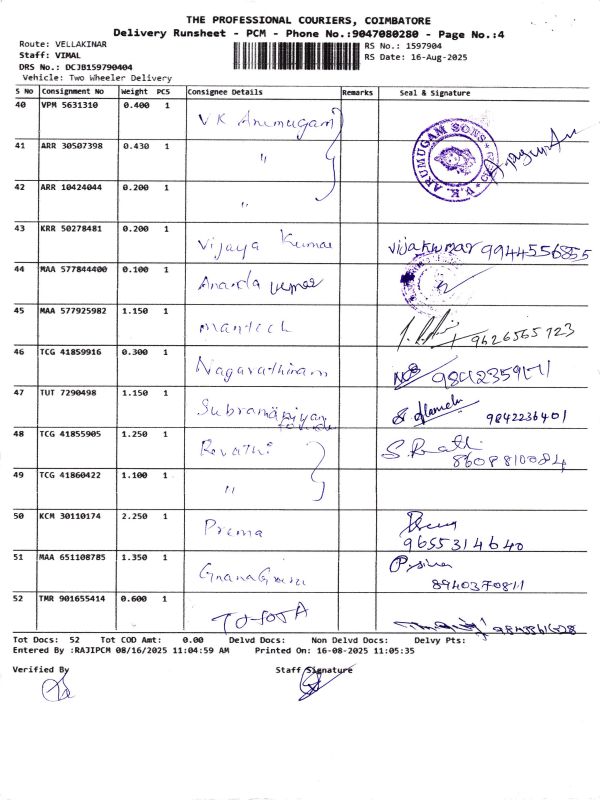 THE PROFESSIONAL COURIERS, COIMBATORE
Delivery Runsheet - PCM - Phone No.:9047080280 - Page No.:4
Route: VELLAKINAR
Staff: VIMAL
DRS No.: DCJB159790404
Vehicle: Two Wheeler Delivery
RS No.: 1597904
RS Date: 16-Aug-2025
S No Consignment No Weight PCS Consignee Details Remarks Seal & Signature
40 VPM 5631310 0.400 1 V K Arumugam
V.K. ARUMUGAM SONS
41 ARR 30507398 0.430 1 "
42 ARR 10424044 0.200 1 "
43 KRR 50278481 0.200 1 Vijaya Kumar Vijakumar 9944556855
44 MAA 577844400 0.100 1 Ananda kumar
45 MAA 577925982 1.150 1 mantech 9626565723
46 TCG 41859916 0.300 1 Nagarathinam
47 TUT 7290498 1.150 1 Subramaniyan 9842236401
48 TCG 41855905 1.250 1 Revathi 8608810084
49 TCG 41860422 1.100 1 "
50 KCM 30110174 2.250 1 Prema 9655314640
51 MAA 651108785 1.350 1 8940370811
52 TMR 901655414 0.600 1
Tot Docs: 52 Tot COD Amt: 0.00 Delvd Docs: Non Delvd Docs: Delvy Pts:
Entered By :RAJIPCM 08/16/2025 11:04:59 AM Printed On: 16-08-2025 11:05:35
Verified By Staff Signature